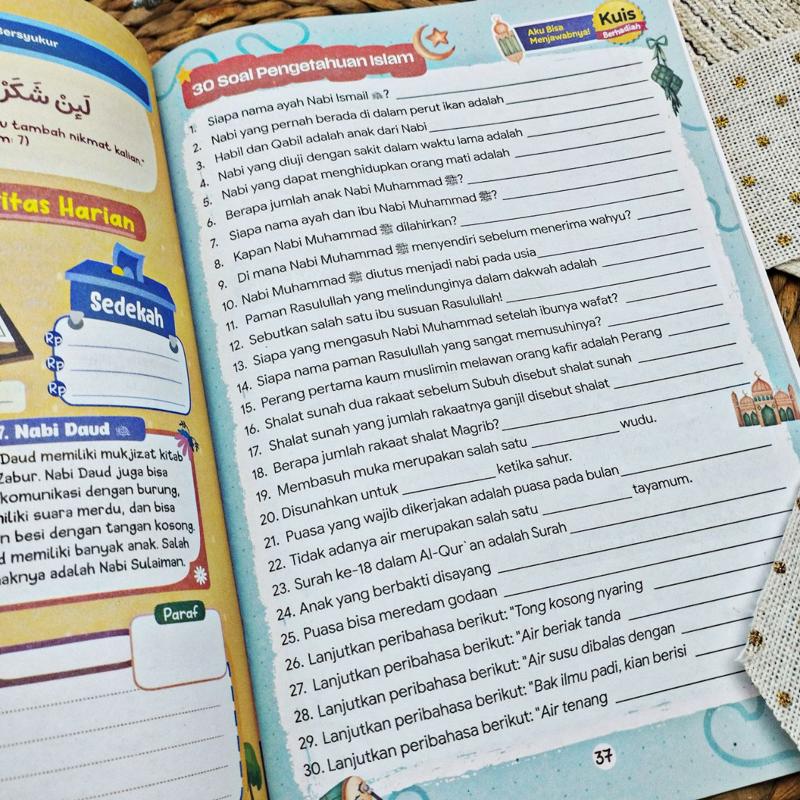 Bersyukur
لَئِنْ شَكَرْ
u tambah nikmat kalian."
m: 7)
itas Harian
Sedekah
Rp
Rp
Rp
7. Nabi Daud
Daud memiliki mukjizat kitab
Zabur. Nabi Daud juga bisa
komunikasi dengan burung,
miliki suara merdu, dan bisa
n besi dengan tangan kosong.
d memiliki banyak anak. Salah
naknya adalah Nabi Sulaiman.
Paraf
30 Soal Pengetahuan Islam
Aku Bisa
Menjawabnya!
Kuis
Berhadiah
1. Siapa nama ayah Nabi Ismail ؑ? ____
2. Nabi yang pernah berada di dalam perut ikan adalah ____
3. Habil dan Qabil adalah anak dari Nabi ____
4. Nabi yang diuji dengan sakit dalam waktu lama adalah ____
5. Nabi yang dapat menghidupkan orang mati adalah ____
6. Berapa jumlah anak Nabi Muhammad ﷺ? ____
7. Siapa nama ayah dan ibu Nabi Muhammad ﷺ? ____
8. Kapan Nabi Muhammad ﷺ dilahirkan? ____
9. Di mana Nabi Muhammad ﷺ menyendiri sebelum menerima wahyu? ____
10. Nabi Muhammad ﷺ diutus menjadi nabi pada usia ____
11. Paman Rasulullah yang melindunginya dalam dakwah adalah ____
12. Sebutkan salah satu ibu susuan Rasulullah! ____
13. Siapa yang mengasuh Nabi Muhammad setelah ibunya wafat? ____
14. Siapa nama paman Rasulullah yang sangat memusuhinya? ____
15. Perang pertama kaum muslimin melawan orang kafir adalah Perang ____
16. Shalat sunah dua rakaat sebelum Subuh disebut shalat sunah ____
17. Shalat sunah yang jumlah rakaatnya ganjil disebut shalat ____
18. Berapa jumlah rakaat shalat Magrib? ____
19. Membasuh muka merupakan salah satu ____ wudu.
20. Disunahkan untuk ____ ketika sahur.
21. Puasa yang wajib dikerjakan adalah puasa pada bulan ____
22. Tidak adanya air merupakan salah satu ____ tayamum.
23. Surah ke-18 dalam Al-Qur`an adalah Surah ____
24. Anak yang berbakti disayang ____
25. Puasa bisa meredam godaan ____
26. Lanjutkan peribahasa berikut: "Tong kosong nyaring ____
27. Lanjutkan peribahasa berikut: "Air beriak tanda ____
28. Lanjutkan peribahasa berikut: "Air susu dibalas dengan ____
29. Lanjutkan peribahasa berikut: "Bak ilmu padi, kian berisi ____
30. Lanjutkan peribahasa berikut: "Air tenang ____
37